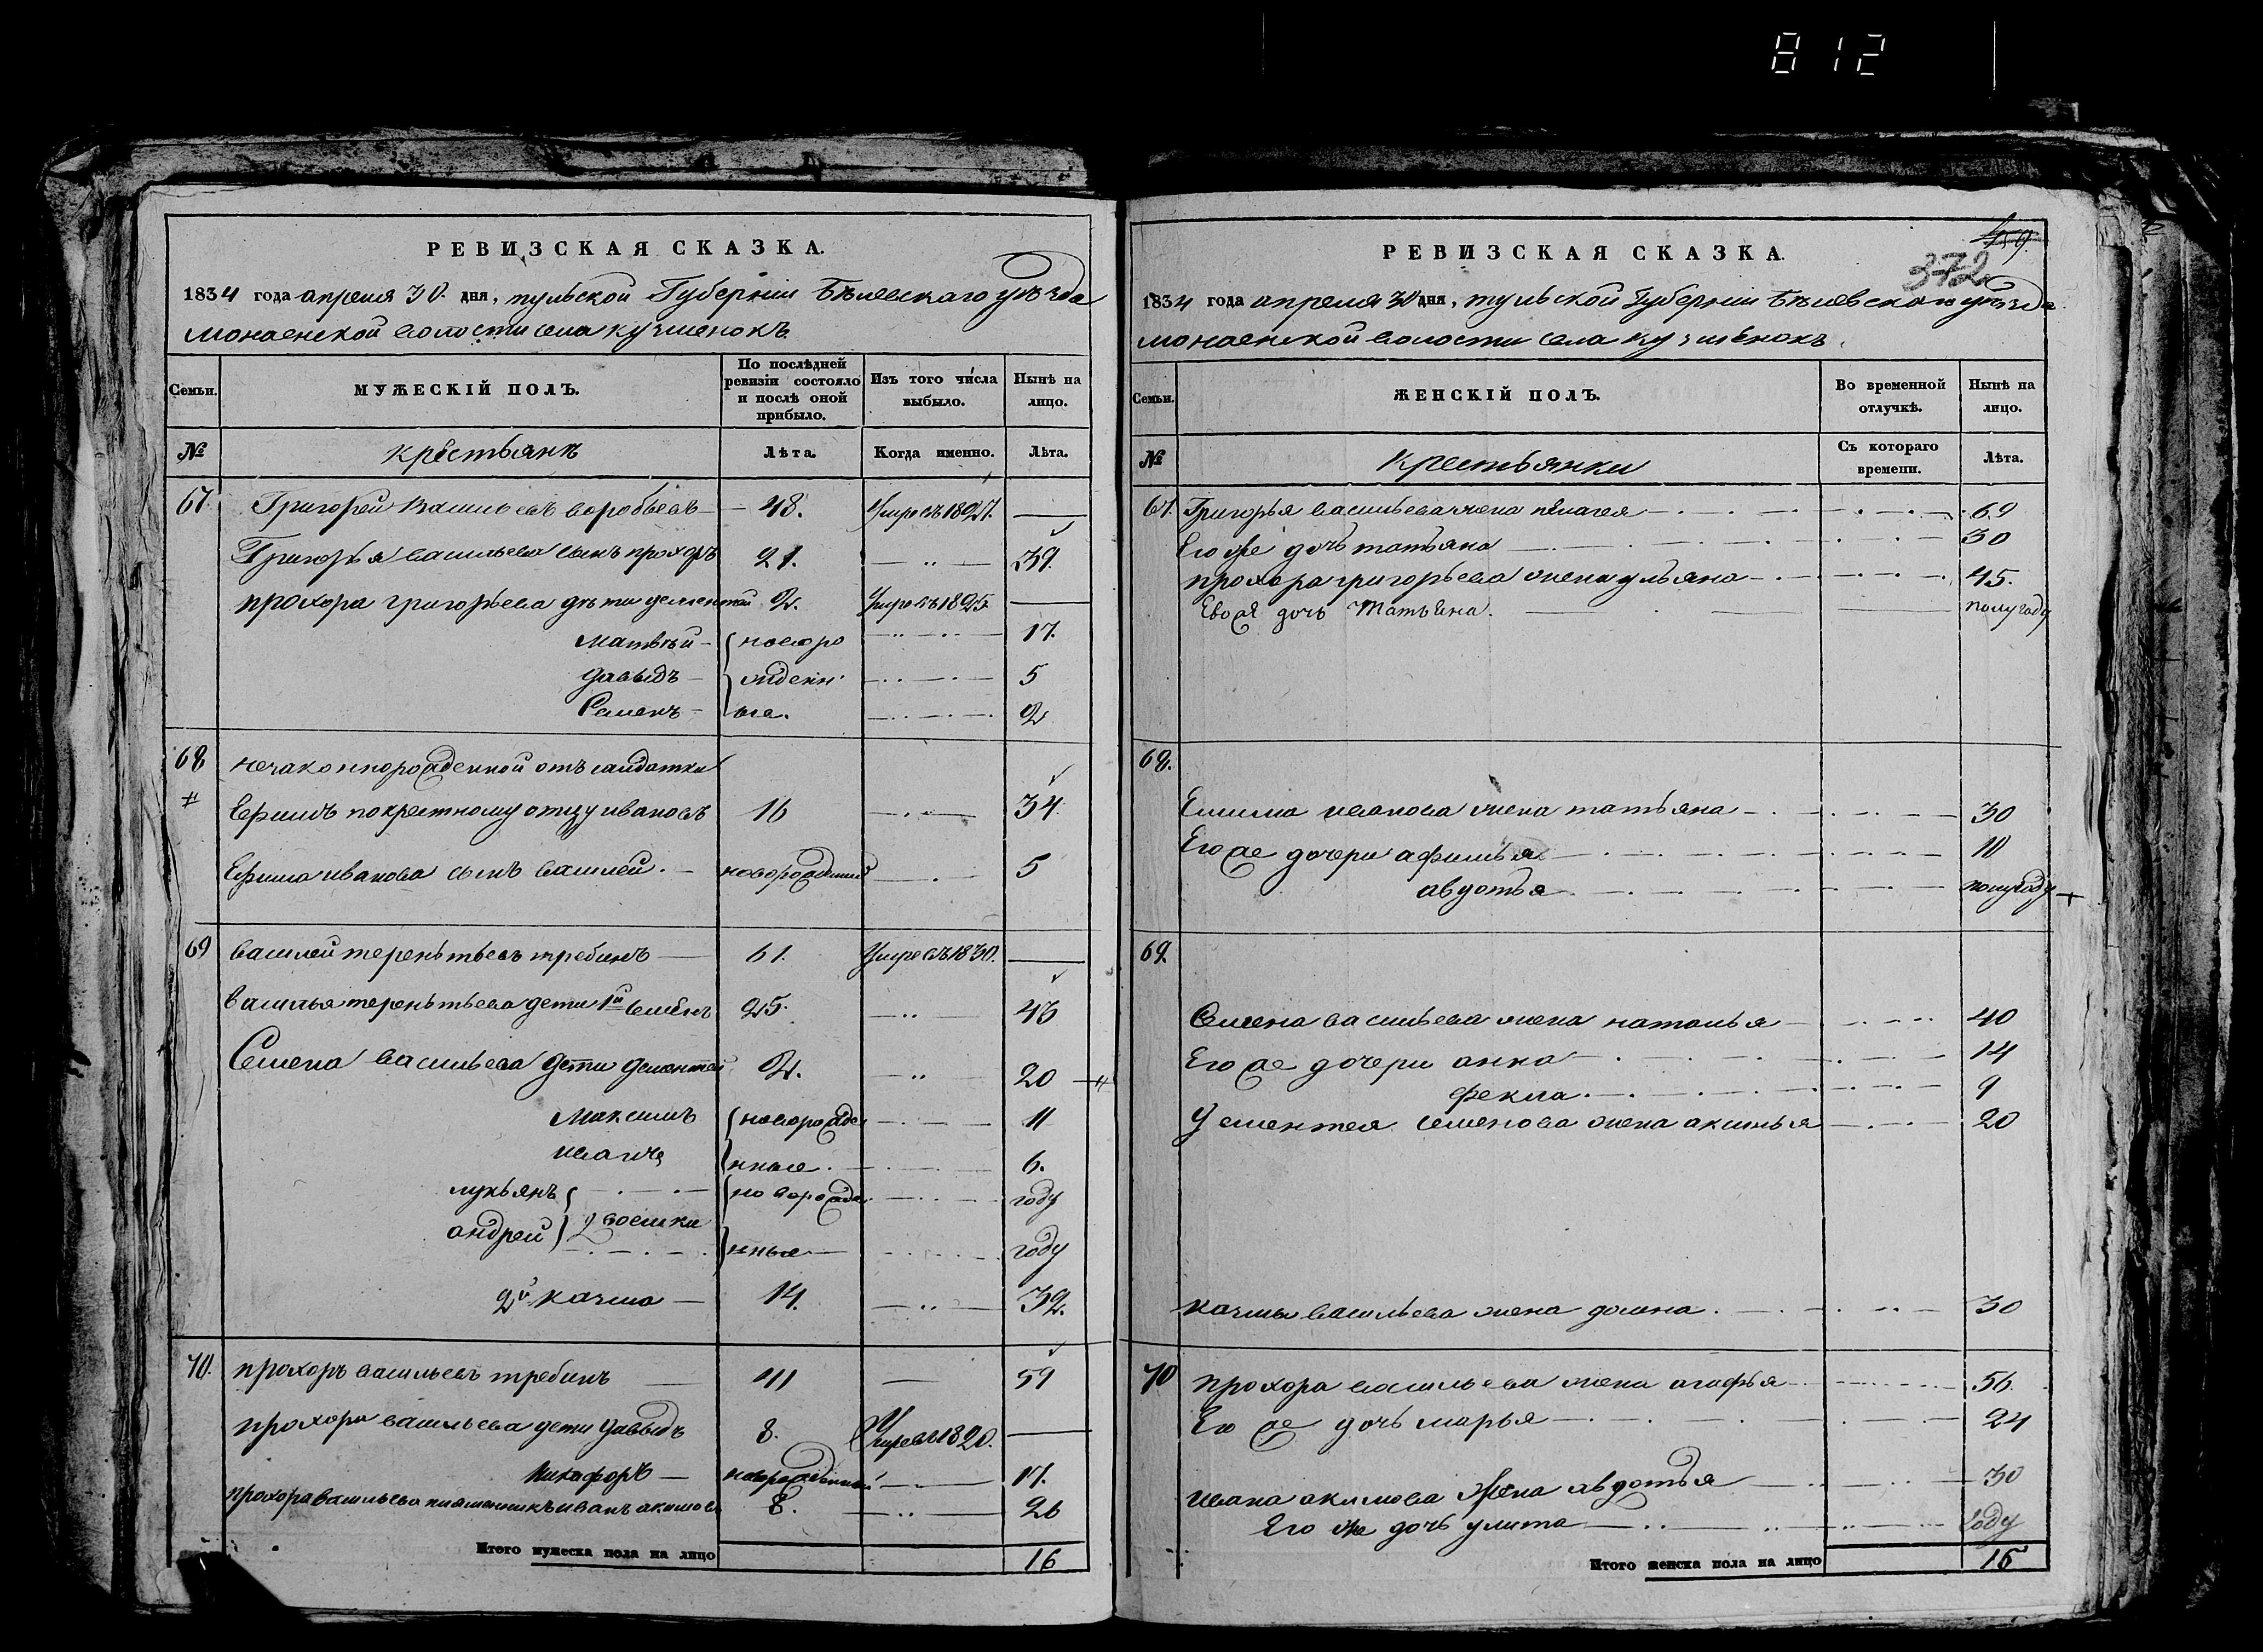 812
РЕВИЗСКАЯ СКАЗКА.
1834 года апреля 30. дня, тульской Губернiи Бѣлевскаго уѣзда
монаенской волости села кузменокъ
Семьи.
МУЖЕСКIЙ ПОЛЪ.
По послѣдней ревизiи состояло и послѣ оной прибыло.
Изъ того числа выбыло.
Нынѣ на лицо.
№ крестьянъ Лѣта. Когда именно. Лѣта.
67. Григорей Васильевъ воробьевъ 48. Умре въ 1827.
Григорья васильева сынъ прохоръ 21. 39.
прохора григорьева дѣти дементей 2. Умре въ 1825.
матвѣй новоро 17.
давыдъ жденн 5
Семенъ ые. 2
68 незаконнорожденной отъ салдатки
Ефимъ покрестному отцу ивановъ 16 34.
Ефима иванова сынъ василей новорожденный 5
69 василей терентьевъ требинъ 61. Умре въ 1830.
василья терентьева дети 1й семенъ 25. 43
Семена васильева дети дементей 2. 20
максимъ новорожде 11
иванъ нные. 6.
лукьянъ новорожде году
андрей двоешки нные году
2й казма 14. 32.
70. прохоръ васильевъ требинъ 41 59
прохора васильева дети давыдъ 8. Умре въ 1820.
никафоръ новорожденный 17.
прохора васильева племянникъ иванъ акимовъ 8. 26
Итого мужеска пола на лицо 16
372
РЕВИЗСКАЯ СКАЗКА.
1834 года апреля 30 дня, тульской Губернiи Бѣлевскаго уѣзда
монаенской волости села кузменокъ.
Семьи.
ЖЕНСКIЙ ПОЛЪ.
Во временной отлучкѣ.
Нынѣ на лицо.
№ крестьянки Съ котораго времени. Лѣта.
67. Григорья васильева жена пелагея 69
Его же дочь татьяна 30
прохора григорьева жена ульяна 45.
Евоя дочь Татьяна. полугоду
68.
Ефима иванова жена татьяна 30
Его же дочери афимья 10
авдотья полугоду
69.
Семена васильева жена наталья 40
Его же дочери анна 14
фекла 9
дементея семенова жена аксинья 20
казмы васильева жена домна 30
70 прохора васильева жена агафья 56.
Его же дочь марья 24
ивана акимова жена авдотья 30
Его же дочь улита году
Итого женска пола на лицо 15